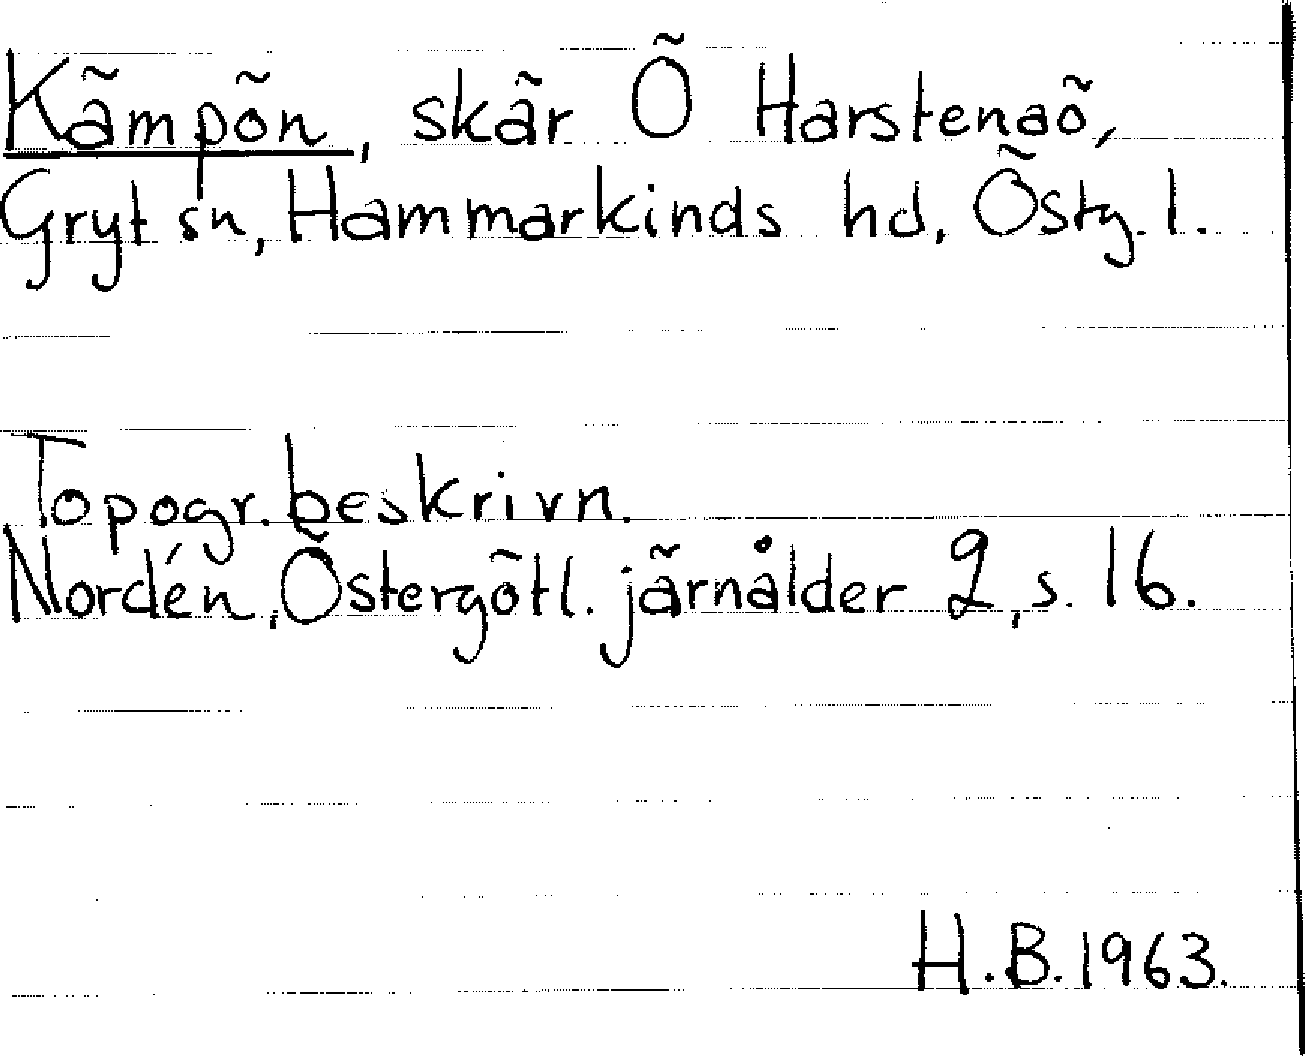 Kämpön, skär Ö Harstenaö,
Gryt sn, Hammarkinds hd, Östg. l.
Topogr. beskrivn.
Nordén, Östergötl. järnålder 2, s. 16.
H.B. 1963.